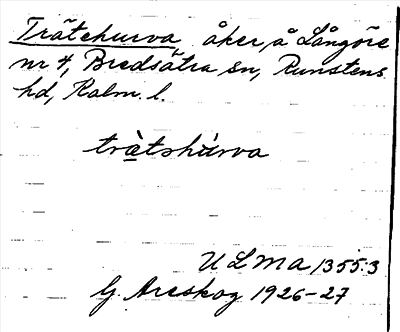 Trätehurva åker, å Långöre
nr 4, Bredsätra sn, Runstens
hd, Kalm. l.
trätshúrva
ULMA 1355:3
G. Areskog 1926-27